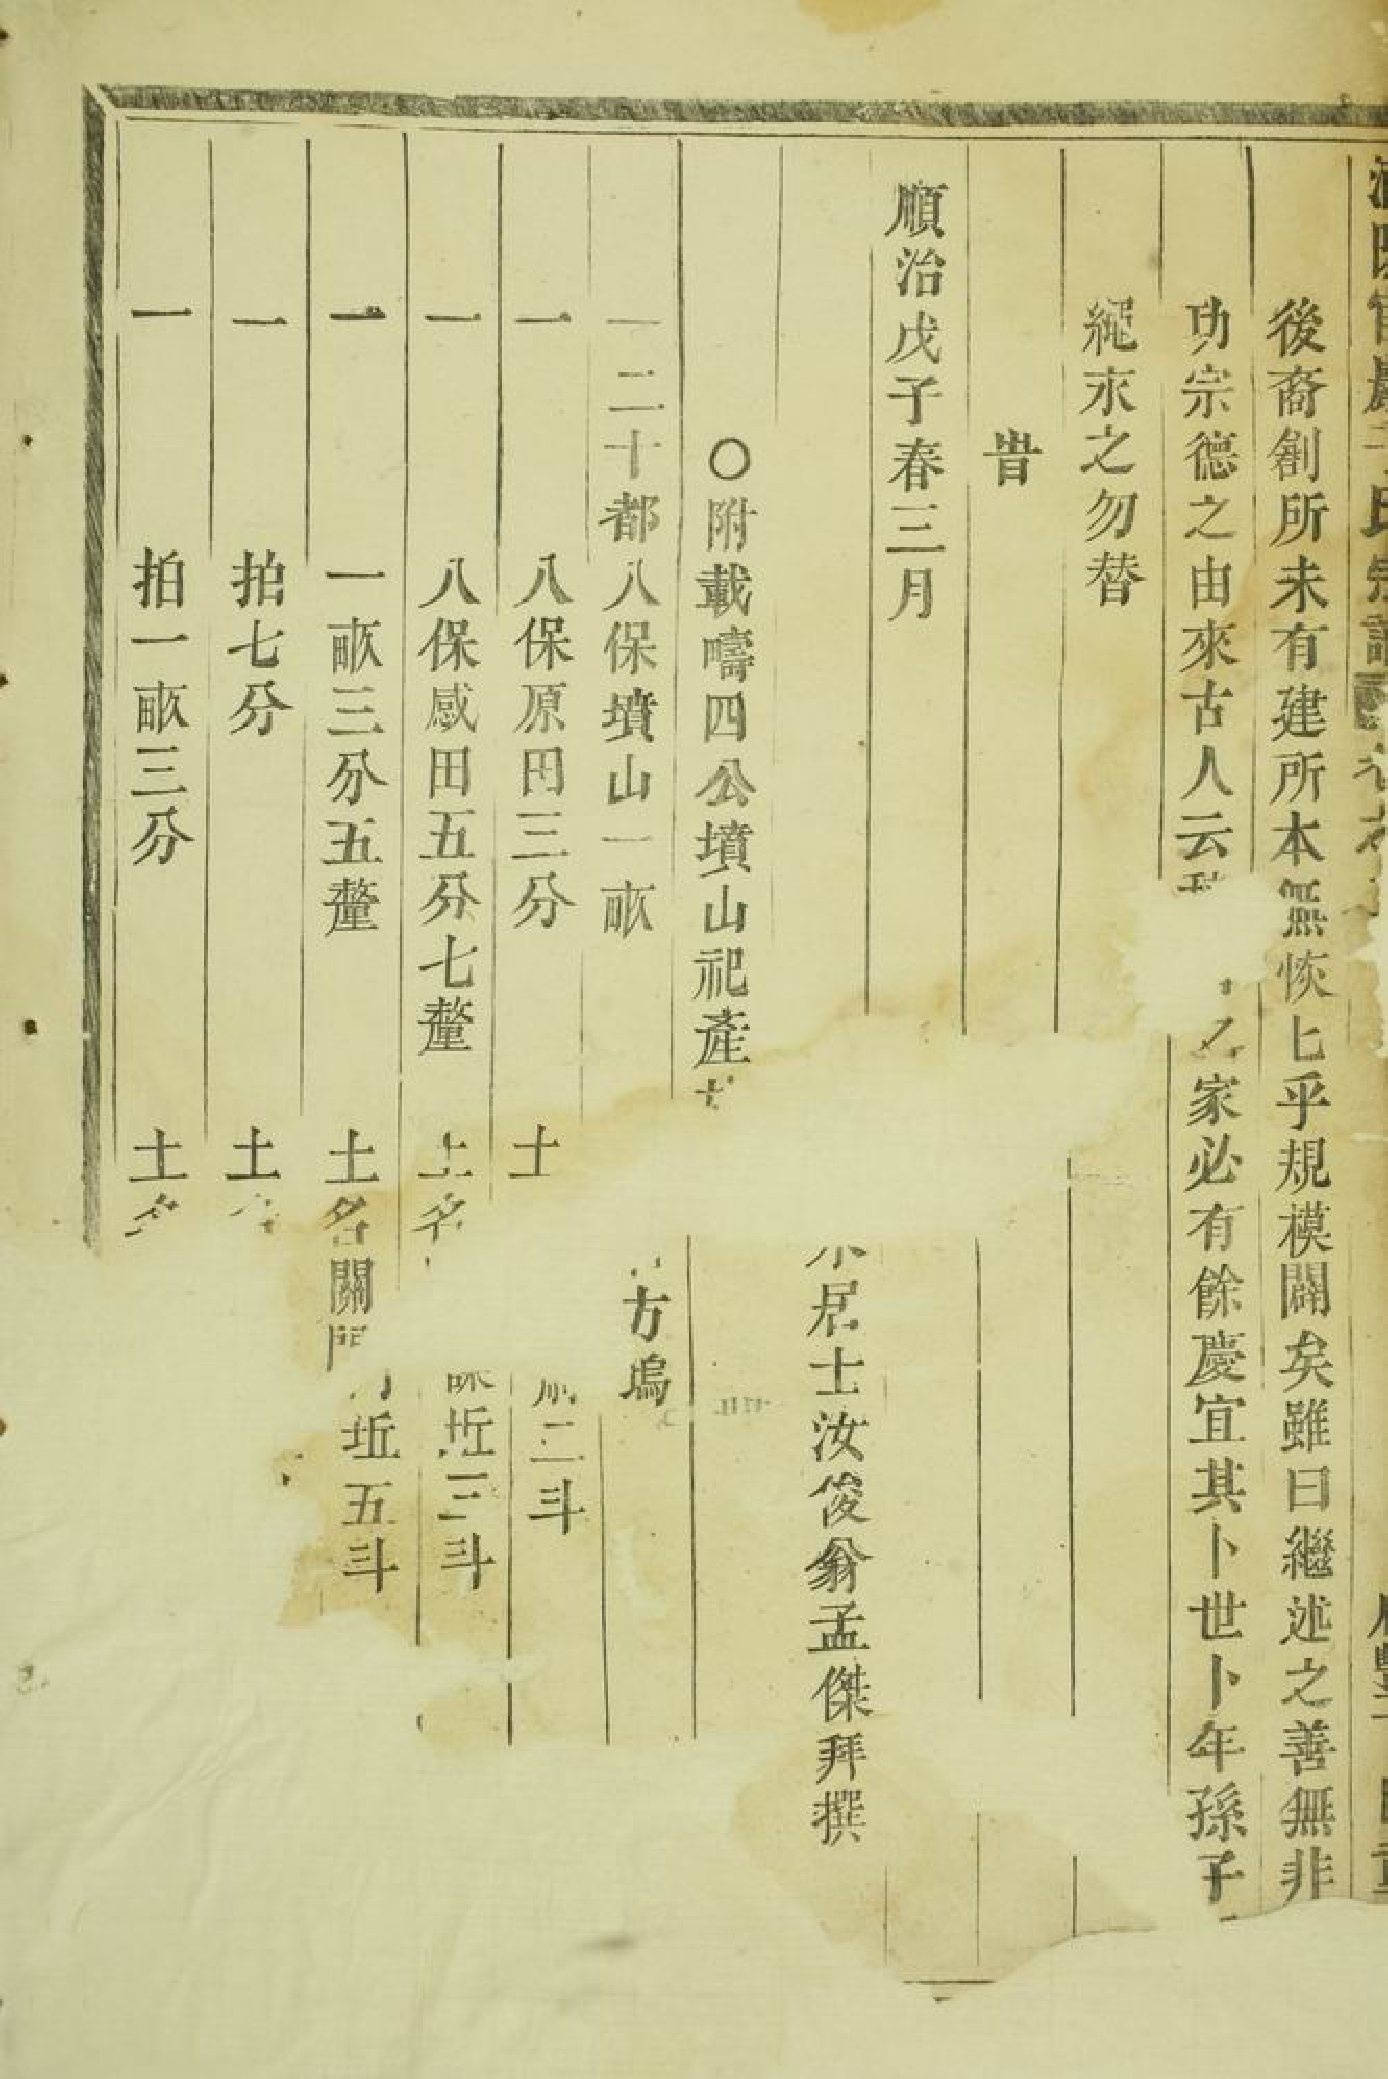 氏宗譜
後裔創所未有建所本無恢乜乎規模闢矣雖曰繼述之善無非
功宗德之由來古人云家必有餘慶宜其卜世卜年孫子
繩承之勿替
旹
順治戊子春三月
居士汝俊翁孟傑拜撰
○附載疇四公墳山祀產
一二十都八保墳山一畝 方塢
一 八保原田三分 土 二斗
一 八保感田五分七釐 土名 坵三斗
一 一畝三分五釐 土名關門 坵五斗
一 拍七分 土名
一 拍一畝三分 土名